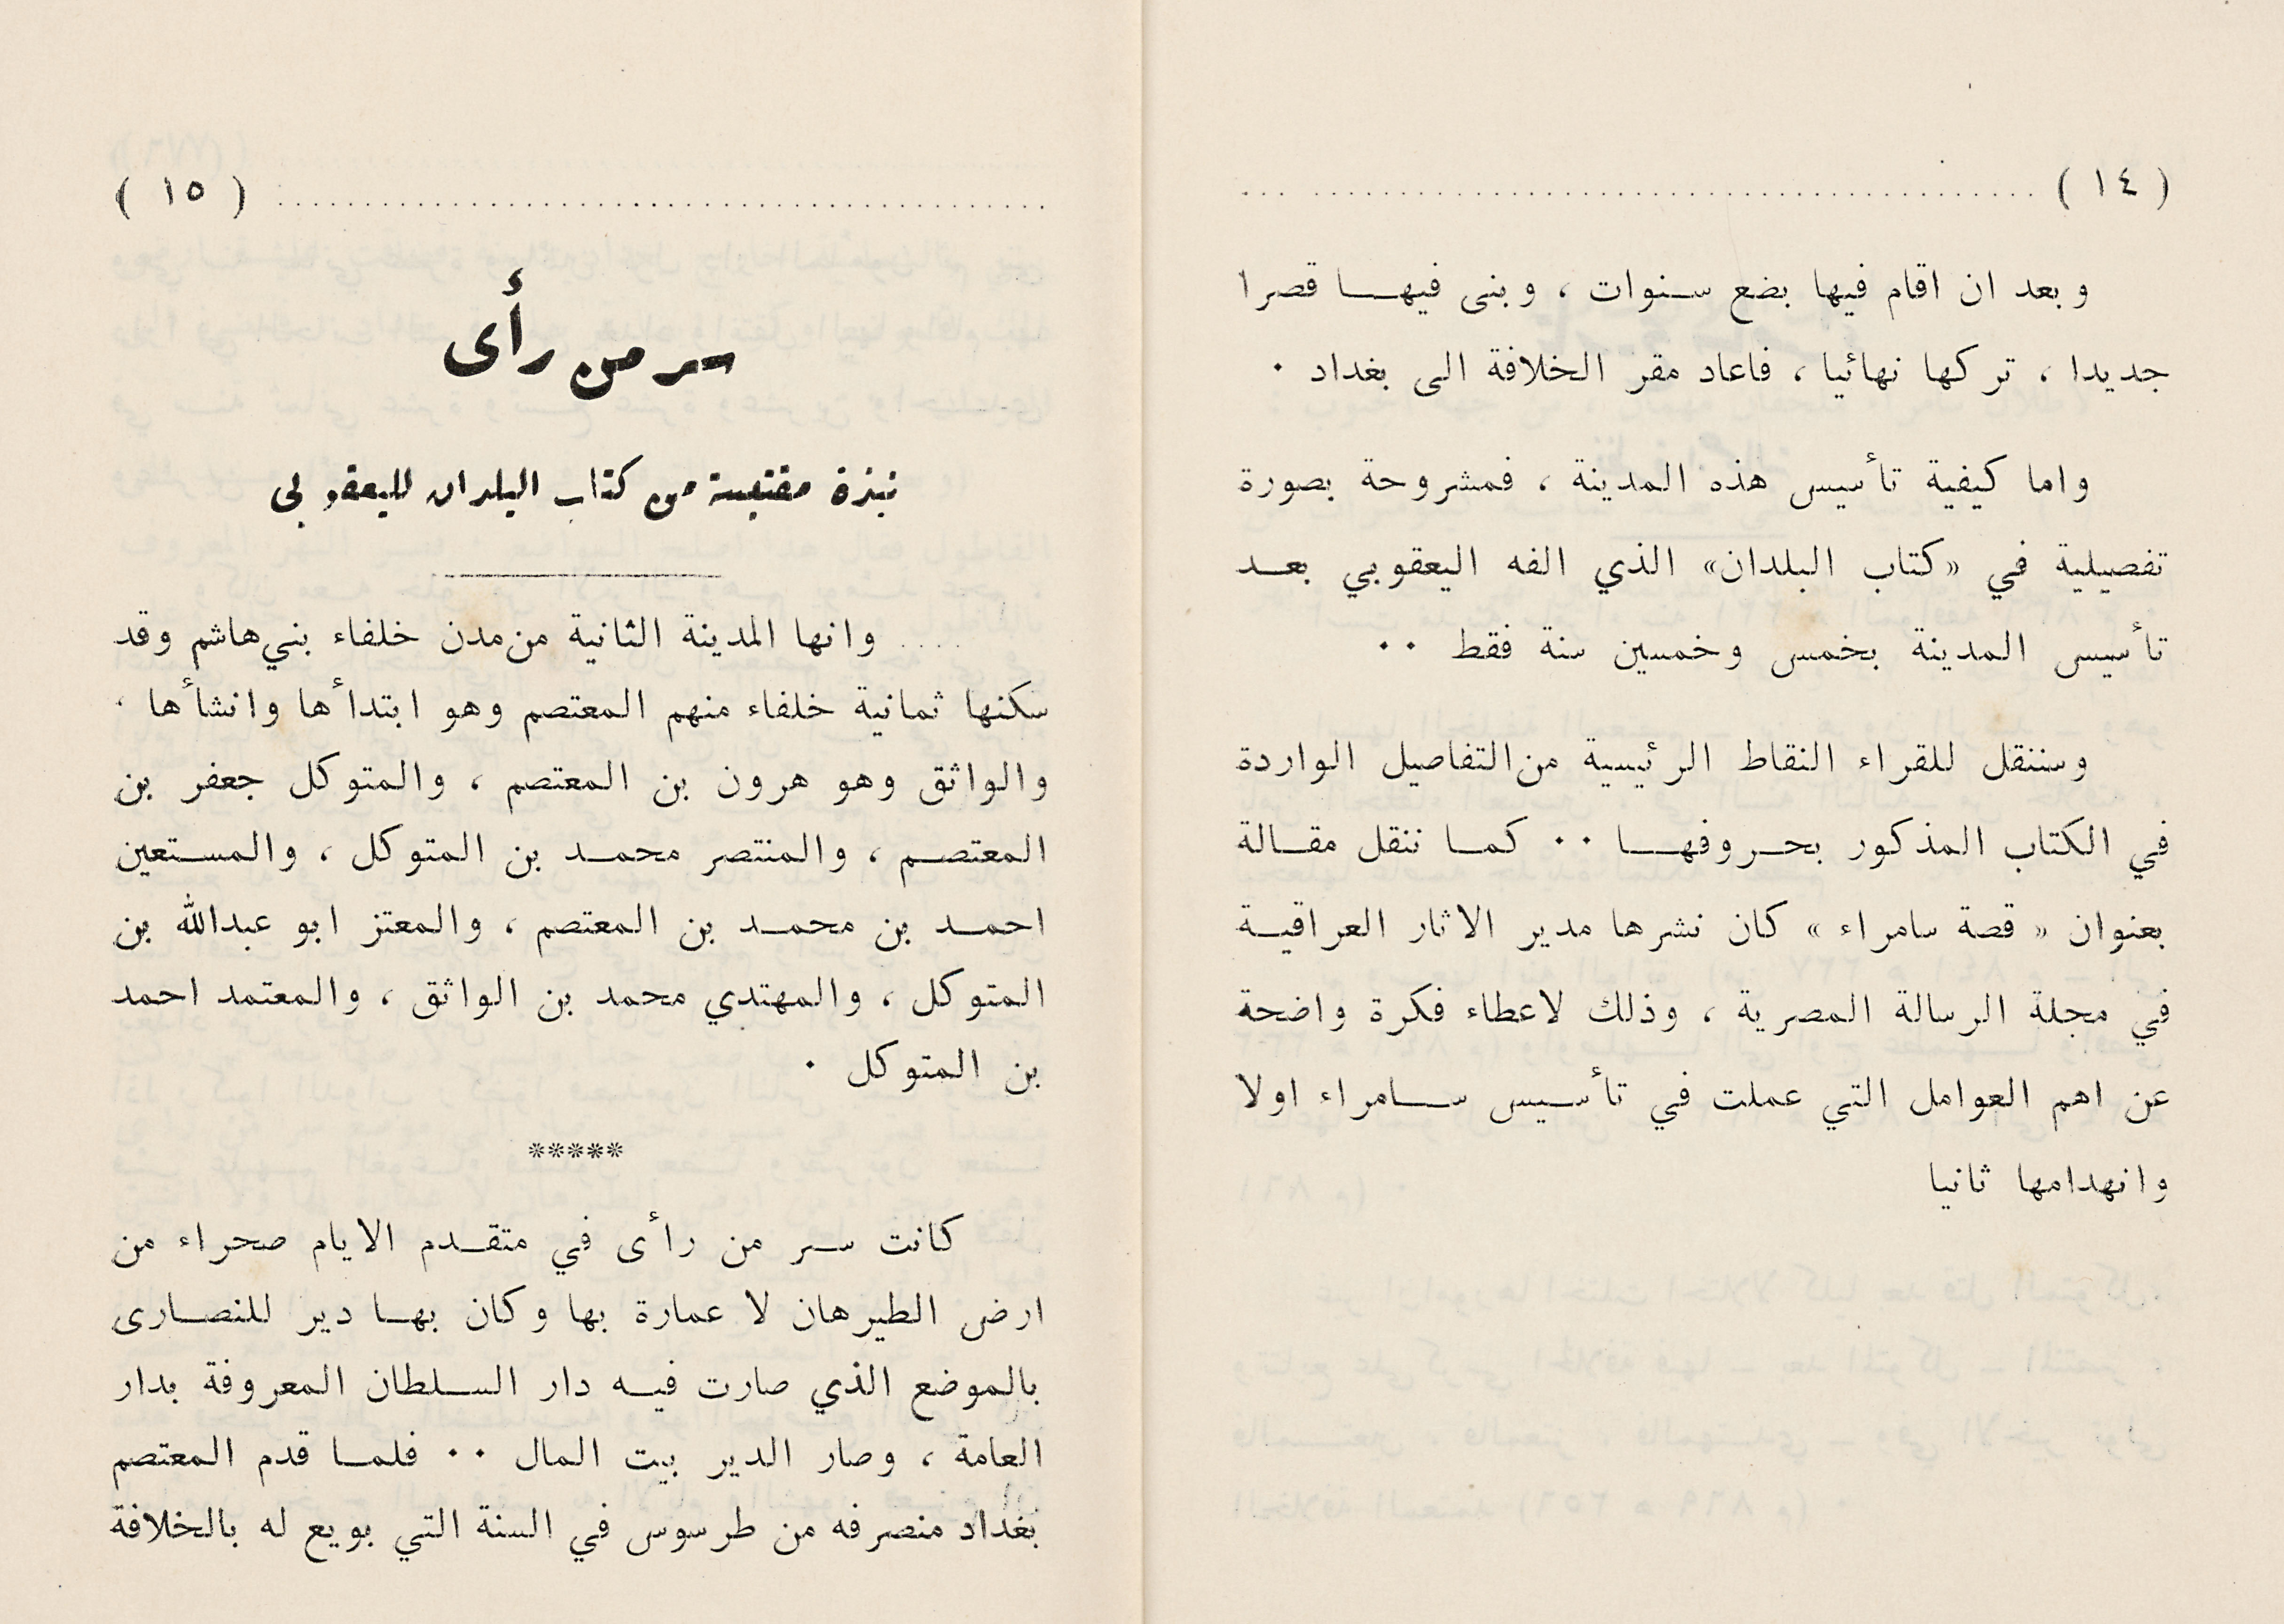 ( ١٤ )
وبعد ان اقام فيها بضع سنوات ، وبنى فيها قصرا
جديدا ، تركها نهائيا ، فاعاد مقر الخلافة الى بغداد ٠
واما كيفية تأسيس هذه المدينة ، فمشروحة بصورة
تفصيلية في «كتاب البلدان» الذي الفه اليعقوبي بعد
تأسيس المدينة بخمس وخمسين سنة فقط ٠٠
وسننقل للقراء النقاط الرئيسية من التفاصيل الواردة
في الكتاب المذكور بحروفها ٠٠ كما ننقل مقالة
بعنوان « قصة سامراء » كان نشرها مدير الاثار العراقية
في مجلة الرسالة المصرية ، وذلك لاعطاء فكرة واضحة
عن اهم العوامل التي عملت في تأسيس سامراء اولا
وانهدامها ثانيا
( ١٥ )
سر من رأى
نبذة مقتبسة من كتاب البلدان لليعقوبى
.... وانها المدينة الثانية من مدن خلفاء بني هاشم وقد
سكنها ثمانية خلفاء منهم المعتصم وهو ابتدأها وانشأها ٠
والواثق وهو هرون بن المعتصم ، والمتوكل جعفر بن
المعتصم ، والمنتصر محمد بن المتوكل ، والمستعين
احمد بن محمد بن المعتصم ، والمعتز ابو عبدالله بن
المتوكل ، والمهتدي محمد بن الواثق ، والمعتمد احمد
بن المتوكل ٠
*****
كانت سر من رأى في متقدم الايام صحراء من
ارض الطيرهان لا عمارة بها وكان بها دير للنصارى
بالموضع الذي صارت فيه دار السلطان المعروفة بدار
العامة ، وصار الدير بيت المال ٠٠ فلما قدم المعتصم
بغداد منصرفه من طرسوس في السنة التي بويع له بالخلافة